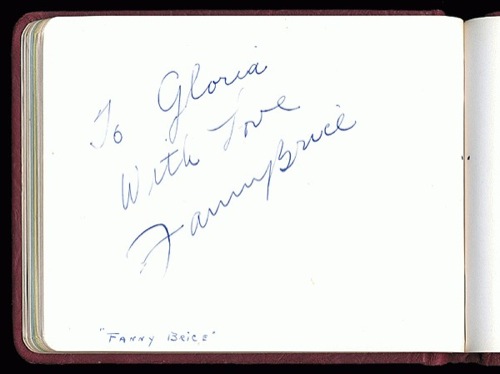 To Gloria
With Love
Fanny Brice
"FANNY BRICE"